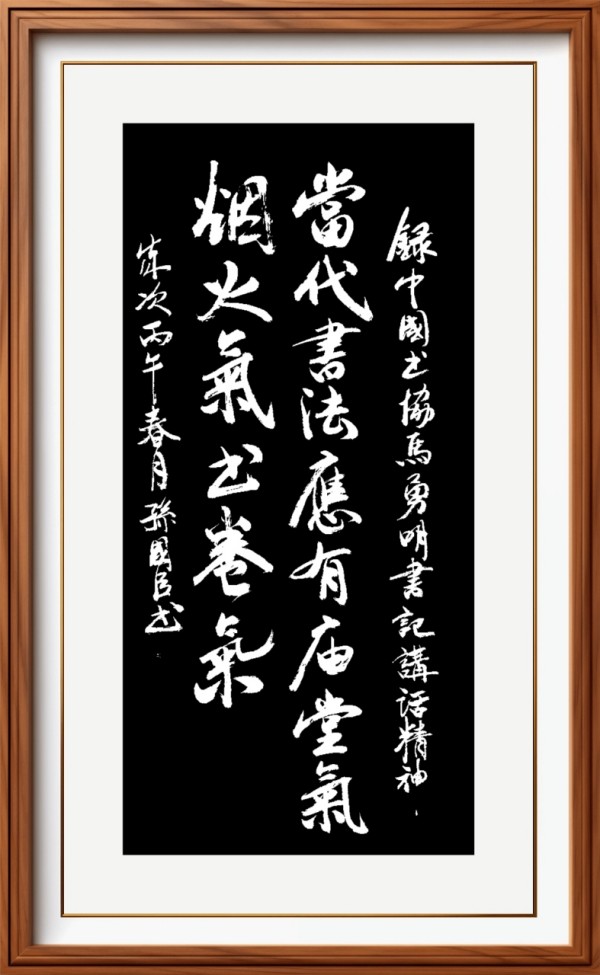 錄中國书協馬勇明書記講话精神
當代書法應有庙堂氣
烟火氣书卷氣
歲次丙午春月孫國臣书